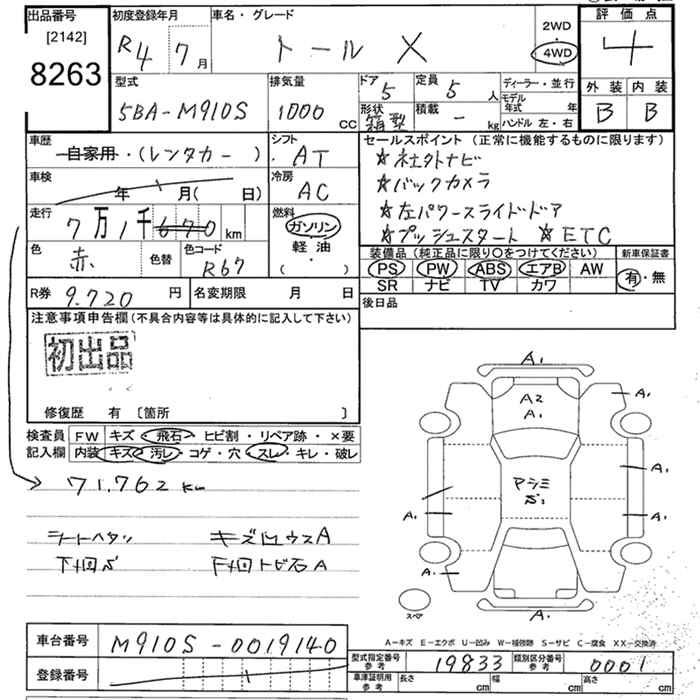 出品番号
[2142]
8263
初度登録年月
R4 7月
車名・グレード
トール X
2WD
4WD
評価点
4
外装 内装
B B
型式
5BA-M910S
排気量
1000 CC
ドア
5
定員
5 人
形状
箱型
積載
- kg
ディーラー・並行
モデル年式 年
ハンドル 左・右
車歴
自家用・(レンタカー)
シフト
AT
車検
年 月( 日)
冷房
AC
走行
7万1千670 km
燃料
ガソリン
軽油
( )
色
赤
色替
色コード
R67
セールスポイント (正常に機能するものに限ります)
☆社外ナビ
☆バックカメラ
☆左パワースライドドア
☆プッシュスタート ☆ETC
装備品 (純正品に限り〇をつけてください)
PS PW ABS エアB AW
SR ナビ TV カワ
新車保証書
有・無
R券 9.720 円
名変期限 月 日
後日品
注意事項申告欄(不具合内容等は具体的に記入して下さい)
初出品
修復歴 有 〔箇所 〕
検査員記入欄
FW キズ・飛石・ヒビ割・リペア跡・×要
内装 キズ・汚レ・コゲ・穴・スレ・キレ・破レ
71.762 km
シートヘタリ
下回S
下回トビ石A
A1
A2
A1
A1
A1
A1
A1
A1
A1
スペア
A-キズ E-エクボ U-凹み W-補修跡 S-サビ C-腐食 XX-交換済
車台番号 M910S-0019140
登録番号
型式指定番号参考 19833
類別区分番号参考 0001
車庫証明用参考 長さ cm 幅 cm 高さ cm